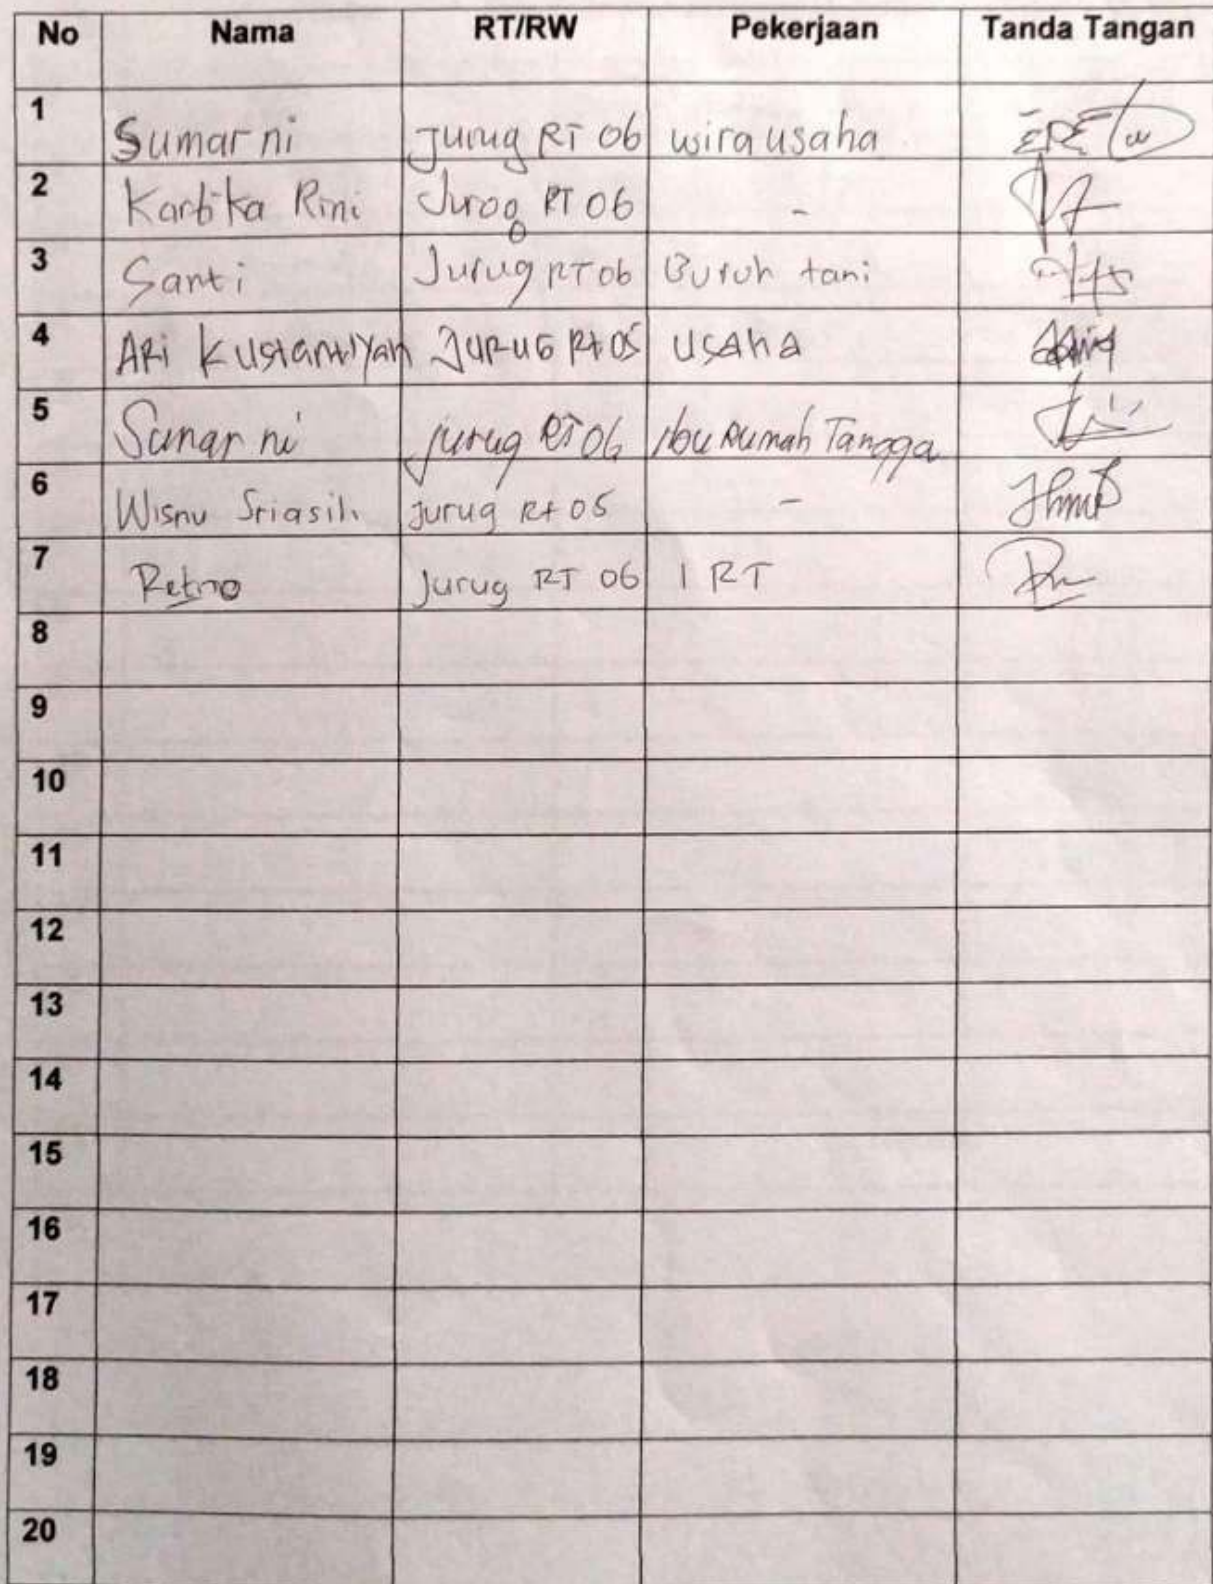 No Nama RT/RW Pekerjaan Tanda Tangan
1 Sumarni Jurug RT 06 wirausaha
2 Kartika Rini Jurog RT 06 -
3 Santi Jurug RT 06 Buruh tani
4 ARi Kustantiyah JURUG Rt 05 USAHA
5 Sunarni jurug RT 06 Ibu Rumah Tangga
6 Wisnu Sriasih Jurug Rt 05 -
7 Retno Jurug RT 06 IRT
8
9
10
11
12
13
14
15
16
17
18
19
20